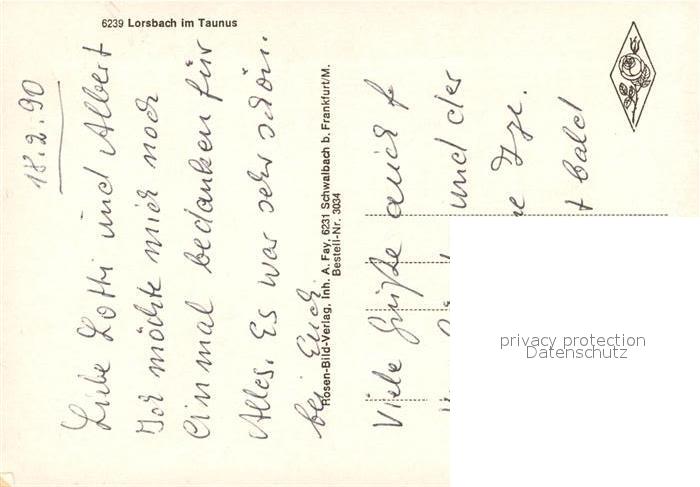 6239 Lorsbach im Taunus
18.2.90
Liebe Lotti und Albert
Ich möchte mich noch
einmal bedanken für
Alles. Es war sehr schön.
bei Euch.
Rosen-Bild-Verlag, Inh. A. Fay, 6231 Schwalbach b. Frankfurt/M.
Bestell-Nr. 3034
Viele Grüße auch f
und der
bald
privacy protection
Datenschutz